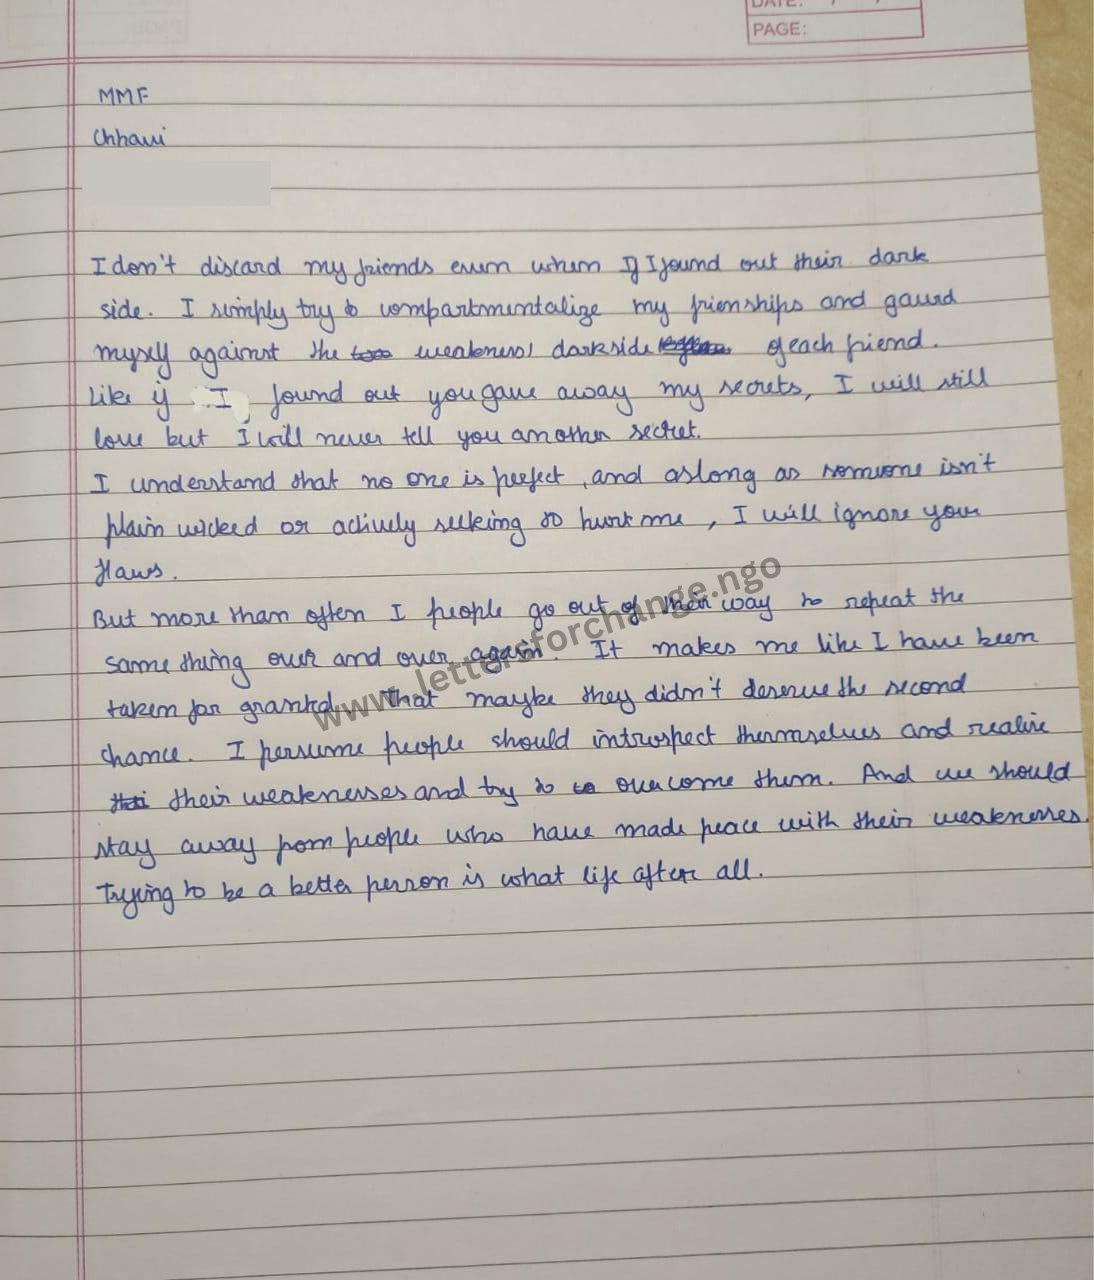 DATE:
PAGE:
MMF
Chhavi
I don't discard my friends even when If I found out their dark
side. I simply try to compartmentalize my frienships and gaurd
myself against the weakness/ darkside of each friend.
Like if I found out you gave away my secrets, I will still
love but I will never tell you another secret.
I understand that no one is perfect, and aslong as someone isn't
plain wicked or actively seeking to hurt me, I will ignore your
flaws.
But more than often I people go out of their way to repeat the
same thing over and over again. It makes me like I have been
taken for granted. That maybe they didn't deserve the second
chance. I persume people should introspect themselves and realise
their weaknesses and try to overcome them. And we should
stay away from people who have made peace with their weaknesses.
Trying to be a better person is what life after all.
www.lettersforchange.ngo